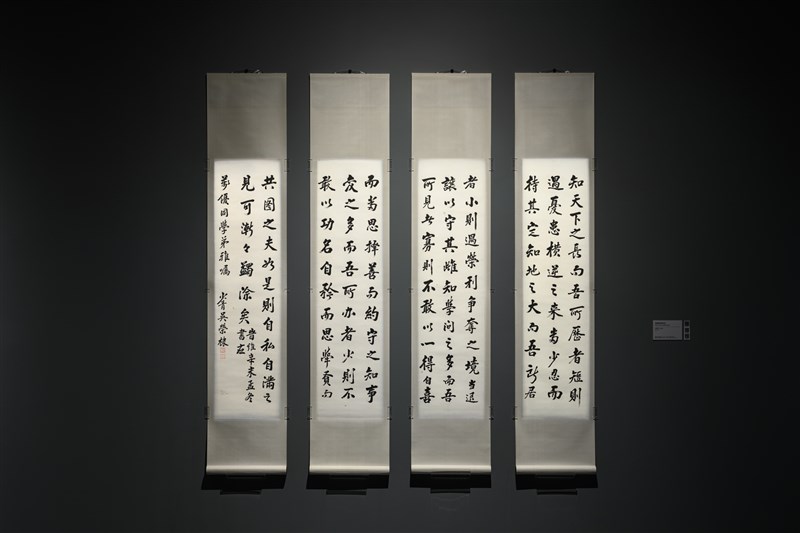 知天下之長而吾所歷者短則
遇憂患橫逆之來當少忍而
待其定知地之大而吾所居
者小則遇榮利爭奪之境當退
讓以守其雌知學問之多而吾
所見者寡則不敢以一得自喜
而當思擇善而約守之知事
變之多而吾所辦者少則不
敢以功名自矜而思舉賢而
共圖之夫如是則自私自滿之
見可漸々蠲除矣
歲維辛未孟冬
書應
萬優同學弟雅囑
吳榮棣